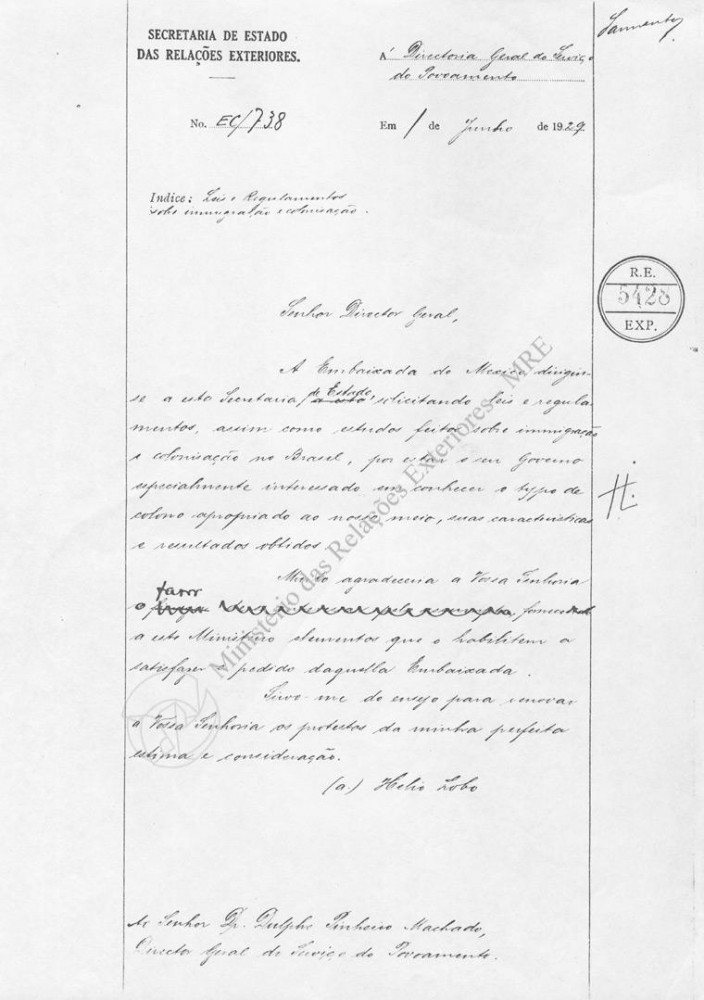 SECRETARIA DE ESTADO
DAS RELAÇÕES EXTERIORES.
A' Directoria Geral do Serviço
do Povoamento
Sarmento
No. EC/738
Em 1 de Junho de 1929
Indice: Leis e Regulamentos
sobre immigração e colonisação.
R.E.
5428
EXP.
Senhor Director Geral,
A Embaixada do Mexico dirigiu-
se a esta Secretaria de Estado, solicitando leis e regula-
mentos, assim como estudos feitos sobre immigração
e colonisação no Brasil, por estar o seu Governo
especialmente interessado em conhecer o typo de
colono apropriado ao nosso meio, suas caracteristicas
e resultados obtidos.
Muito agradeceria a Vossa Senhoria
o favor
a este Ministerio elementos que o habilitem a
satisfazer o pedido daquella Embaixada.
Sirvo-me do ensejo para renovar
a Vossa Senhoria os protestos da minha perfeita
estima e consideração.
(a.) Helio Lobo
Ao Senhor Dr. Dulphe Pinheiro Machado,
Director Geral do Serviço do Povoamento.
Ministério das Relações Exteriores - MRE